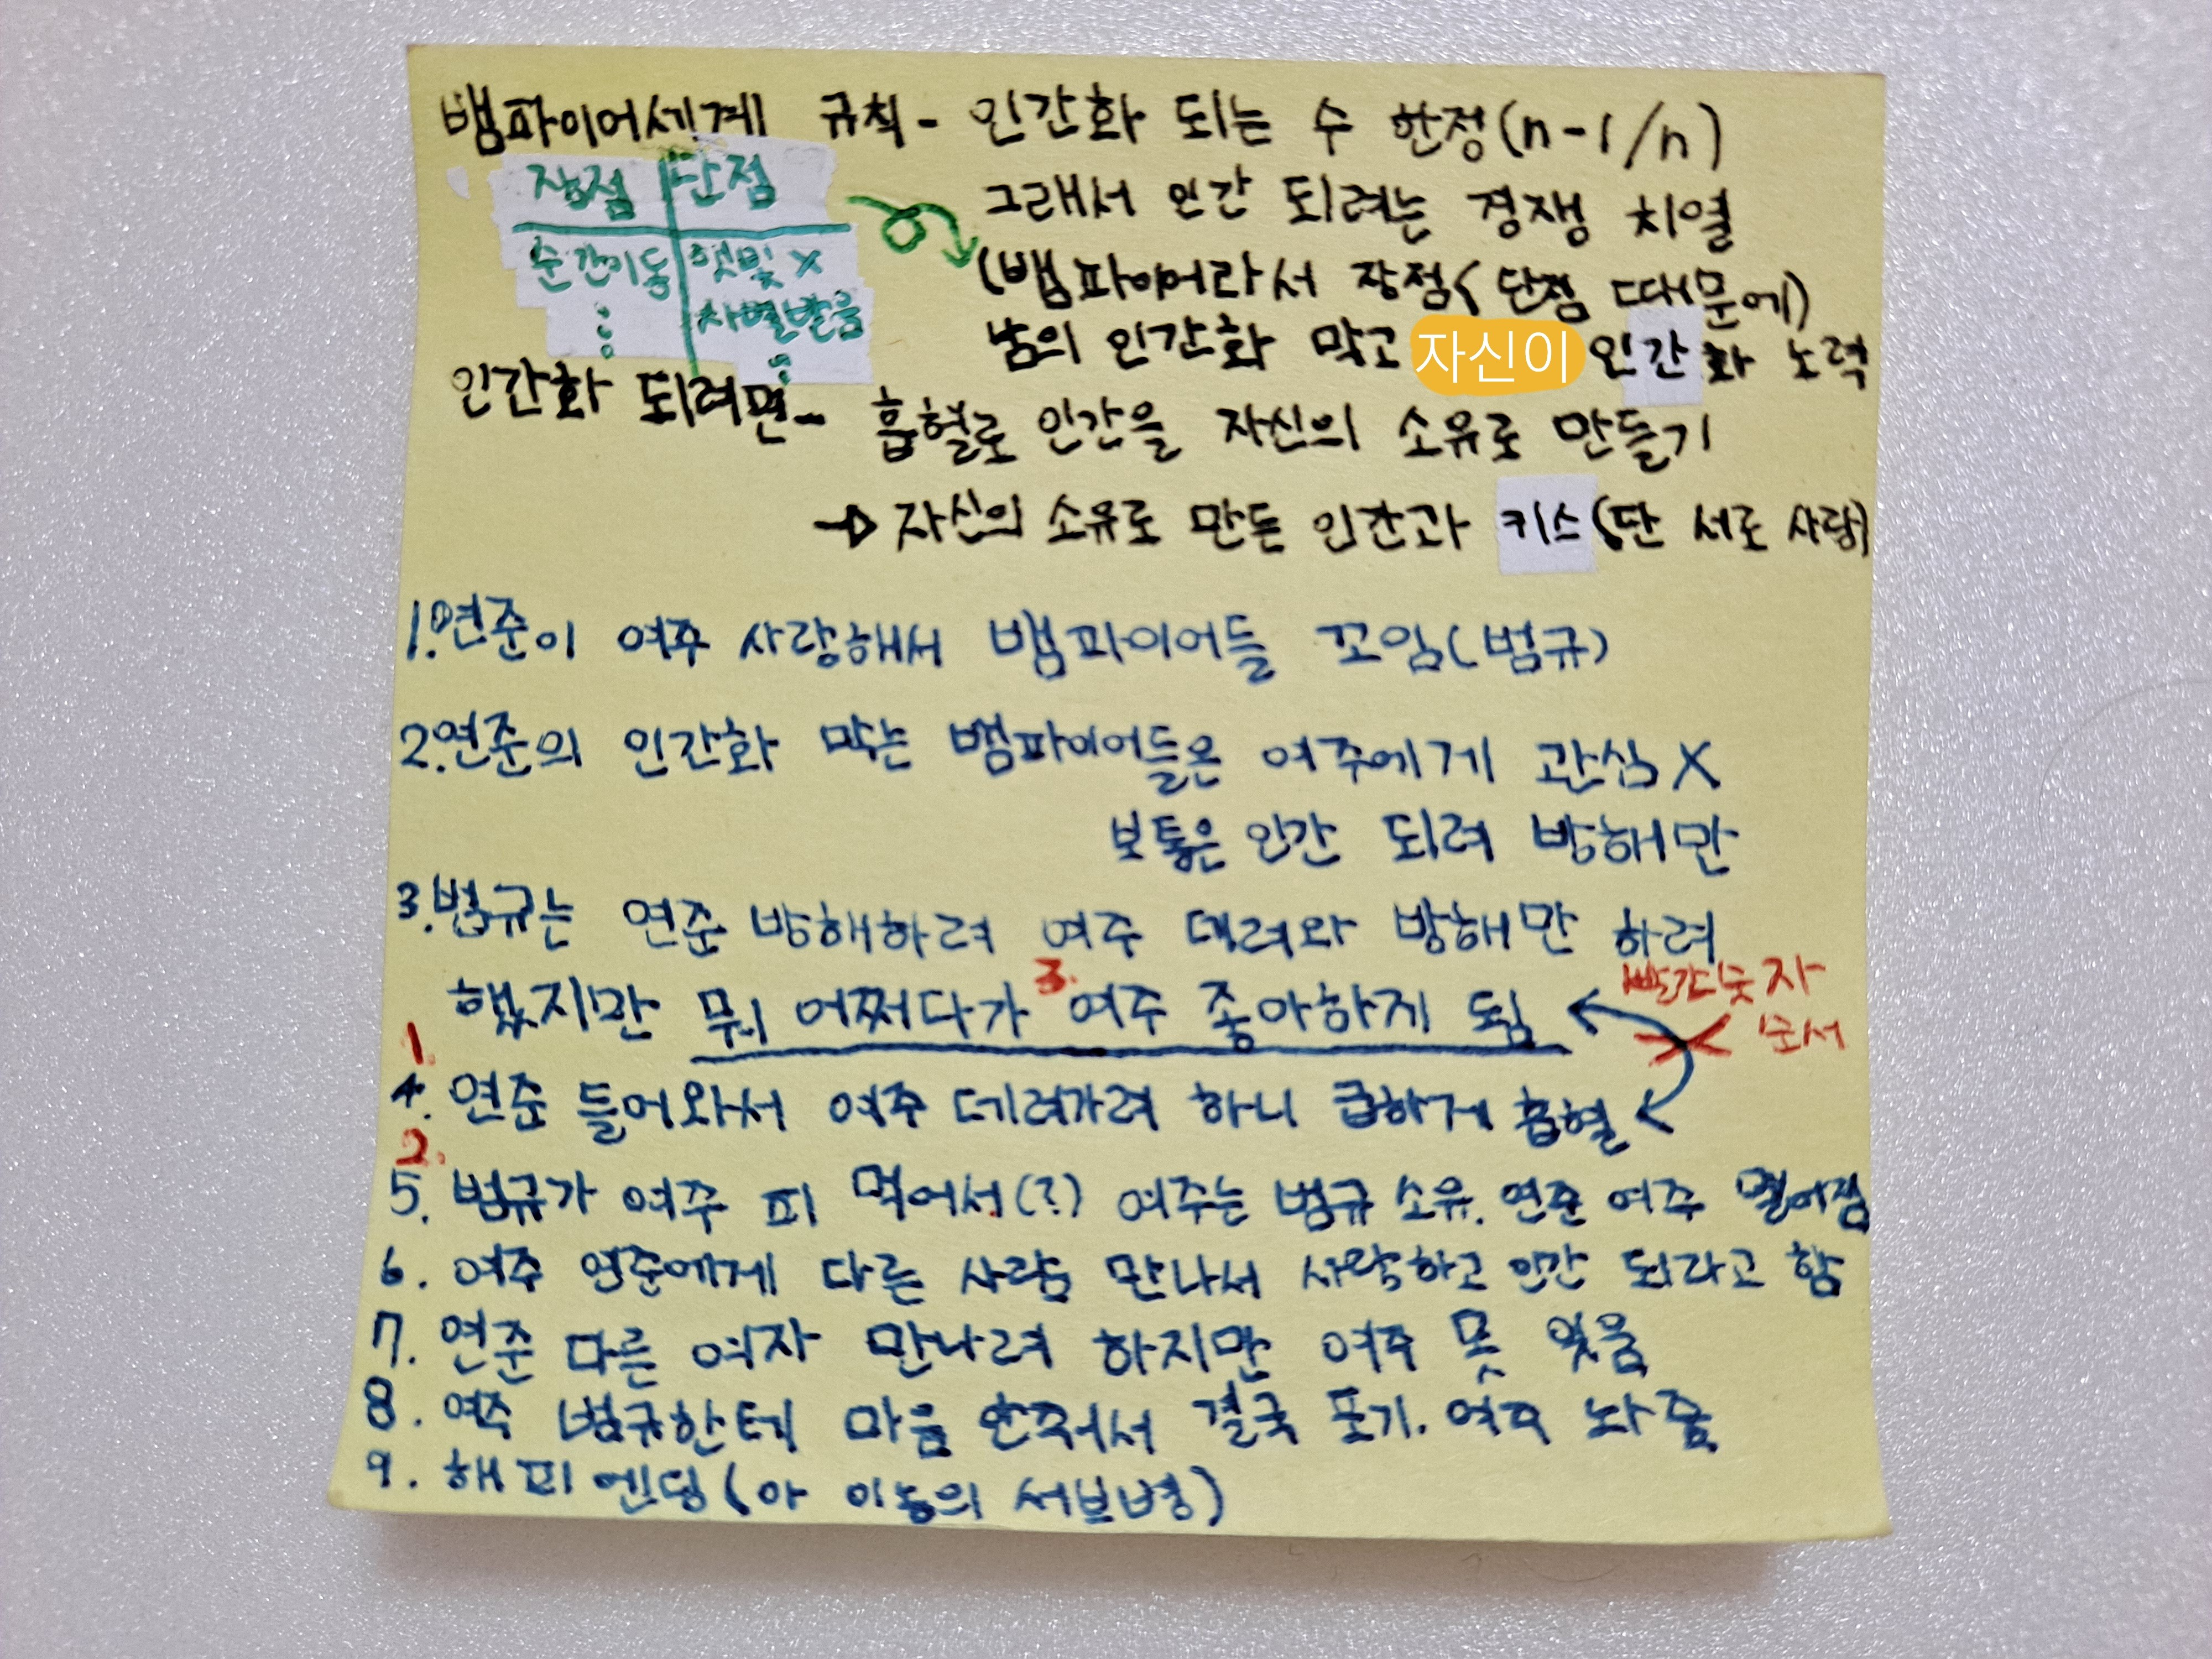 뱀파이어세계 규칙 - 인간화 되는 수 한정(n-1/n)
장점 단점
그래서 인간 되려는 경쟁 치열
순간이동 햇빛 X
(뱀파이어라서 장점<단점 때문에)
⋮ 차별받음
⋮
남의 인간화 막고 자신이 인간화 노력
인간화 되려면 - 흡혈로 인간을 자신의 소유로 만들기
→ 자신의 소유로 만든 인간과 키스(단 서로 사랑)
1. 연준이 여주 사랑해서 뱀파이어들 꼬임(범규)
2. 연준의 인간화 막는 뱀파이어들은 여주에게 관심X
보통은 인간 되려 방해만
3. 범규는 연준 방해하려 여주 데려와 방해만 하려
했지만 뭐 어쩌다가 3. 여주 좋아하게 됨
빨간숫자
순서
1.
4. 연준 들어와서 여주 데려가려 하니 급하게 흡혈
2.
5. 범규가 여주 피 먹어서(?) 여주는 범규 소유. 연준 여주 멀어짐
6. 여주 연준에게 다른 사람 만나서 사랑하고 인간 되라고 함
7. 연준 다른 여자 만나려 하지만 여주 못 잊음
8. 여주 범규한테 마음 안줘서 결국 포기. 여주 놔줌
9. 해피엔딩(아 이놈의 서브병)